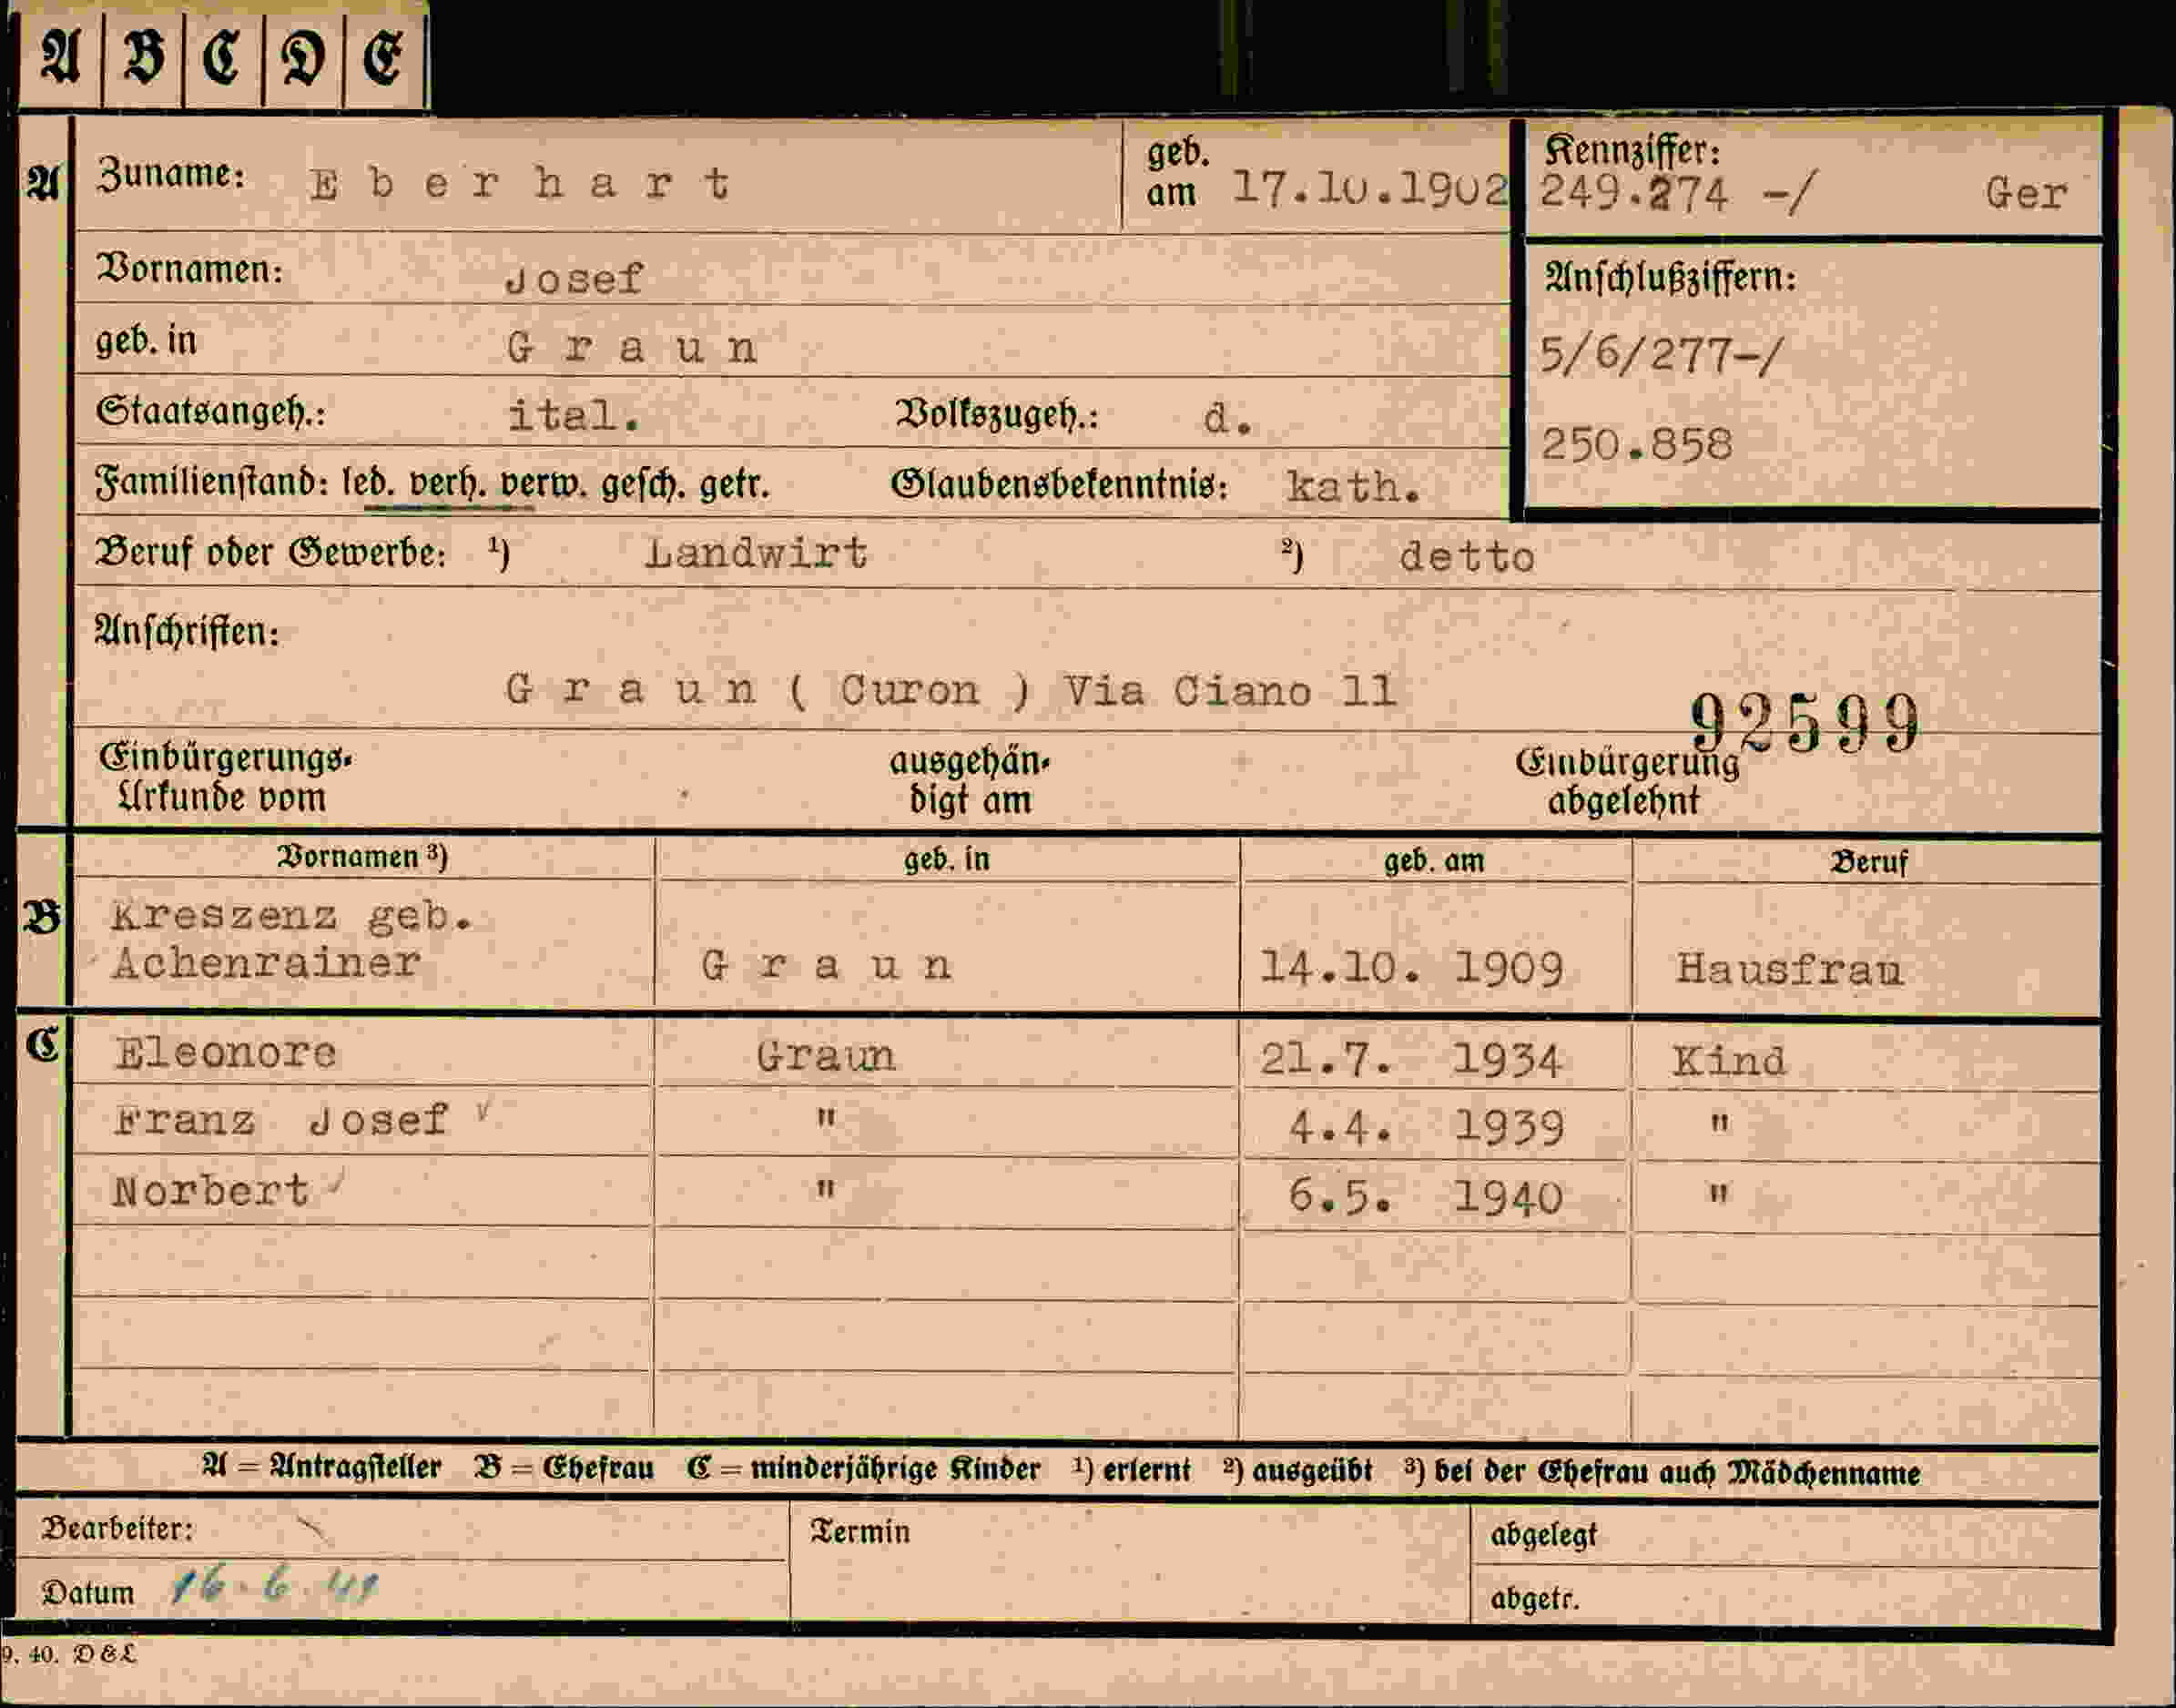 A B C D E
A Zuname: Eberhart geb. am 17.10.1902 Kennziffer: 249.274 -/ Ger
Vornamen: Josef
geb. in Graun
Anschlußziffern:
5/6/277-/
250.858
Staatsangeh.: ital. Volkszugeh.: d.
Familienstand: led. verh. verw. gesch. getr. Glaubensbekenntnis: kath.
Beruf oder Gewerbe: ¹) Landwirt ²) detto
Anschriften:
Graun ( Curon ) Via Ciano 11
92599
Einbürgerungs-Urkunde vom ausgehändigt am Einbürgerung abgelehnt
Vornamen ³) geb. in geb. am Beruf
B Kreszenz geb.
Achenrainer Graun 14.10. 1909 Hausfrau
C Eleonore Graun 21.7. 1934 Kind
Franz Josef " 4.4. 1939 "
Norbert " 6.5. 1940 "
A = Antragsteller B = Ehefrau C = minderjährige Kinder ¹) erlernt ²) ausgeübt ³) bei der Ehefrau auch Mädchenname
Bearbeiter: Termin abgelegt
Datum 16.6.41 abgetr.
9. 40. D & L